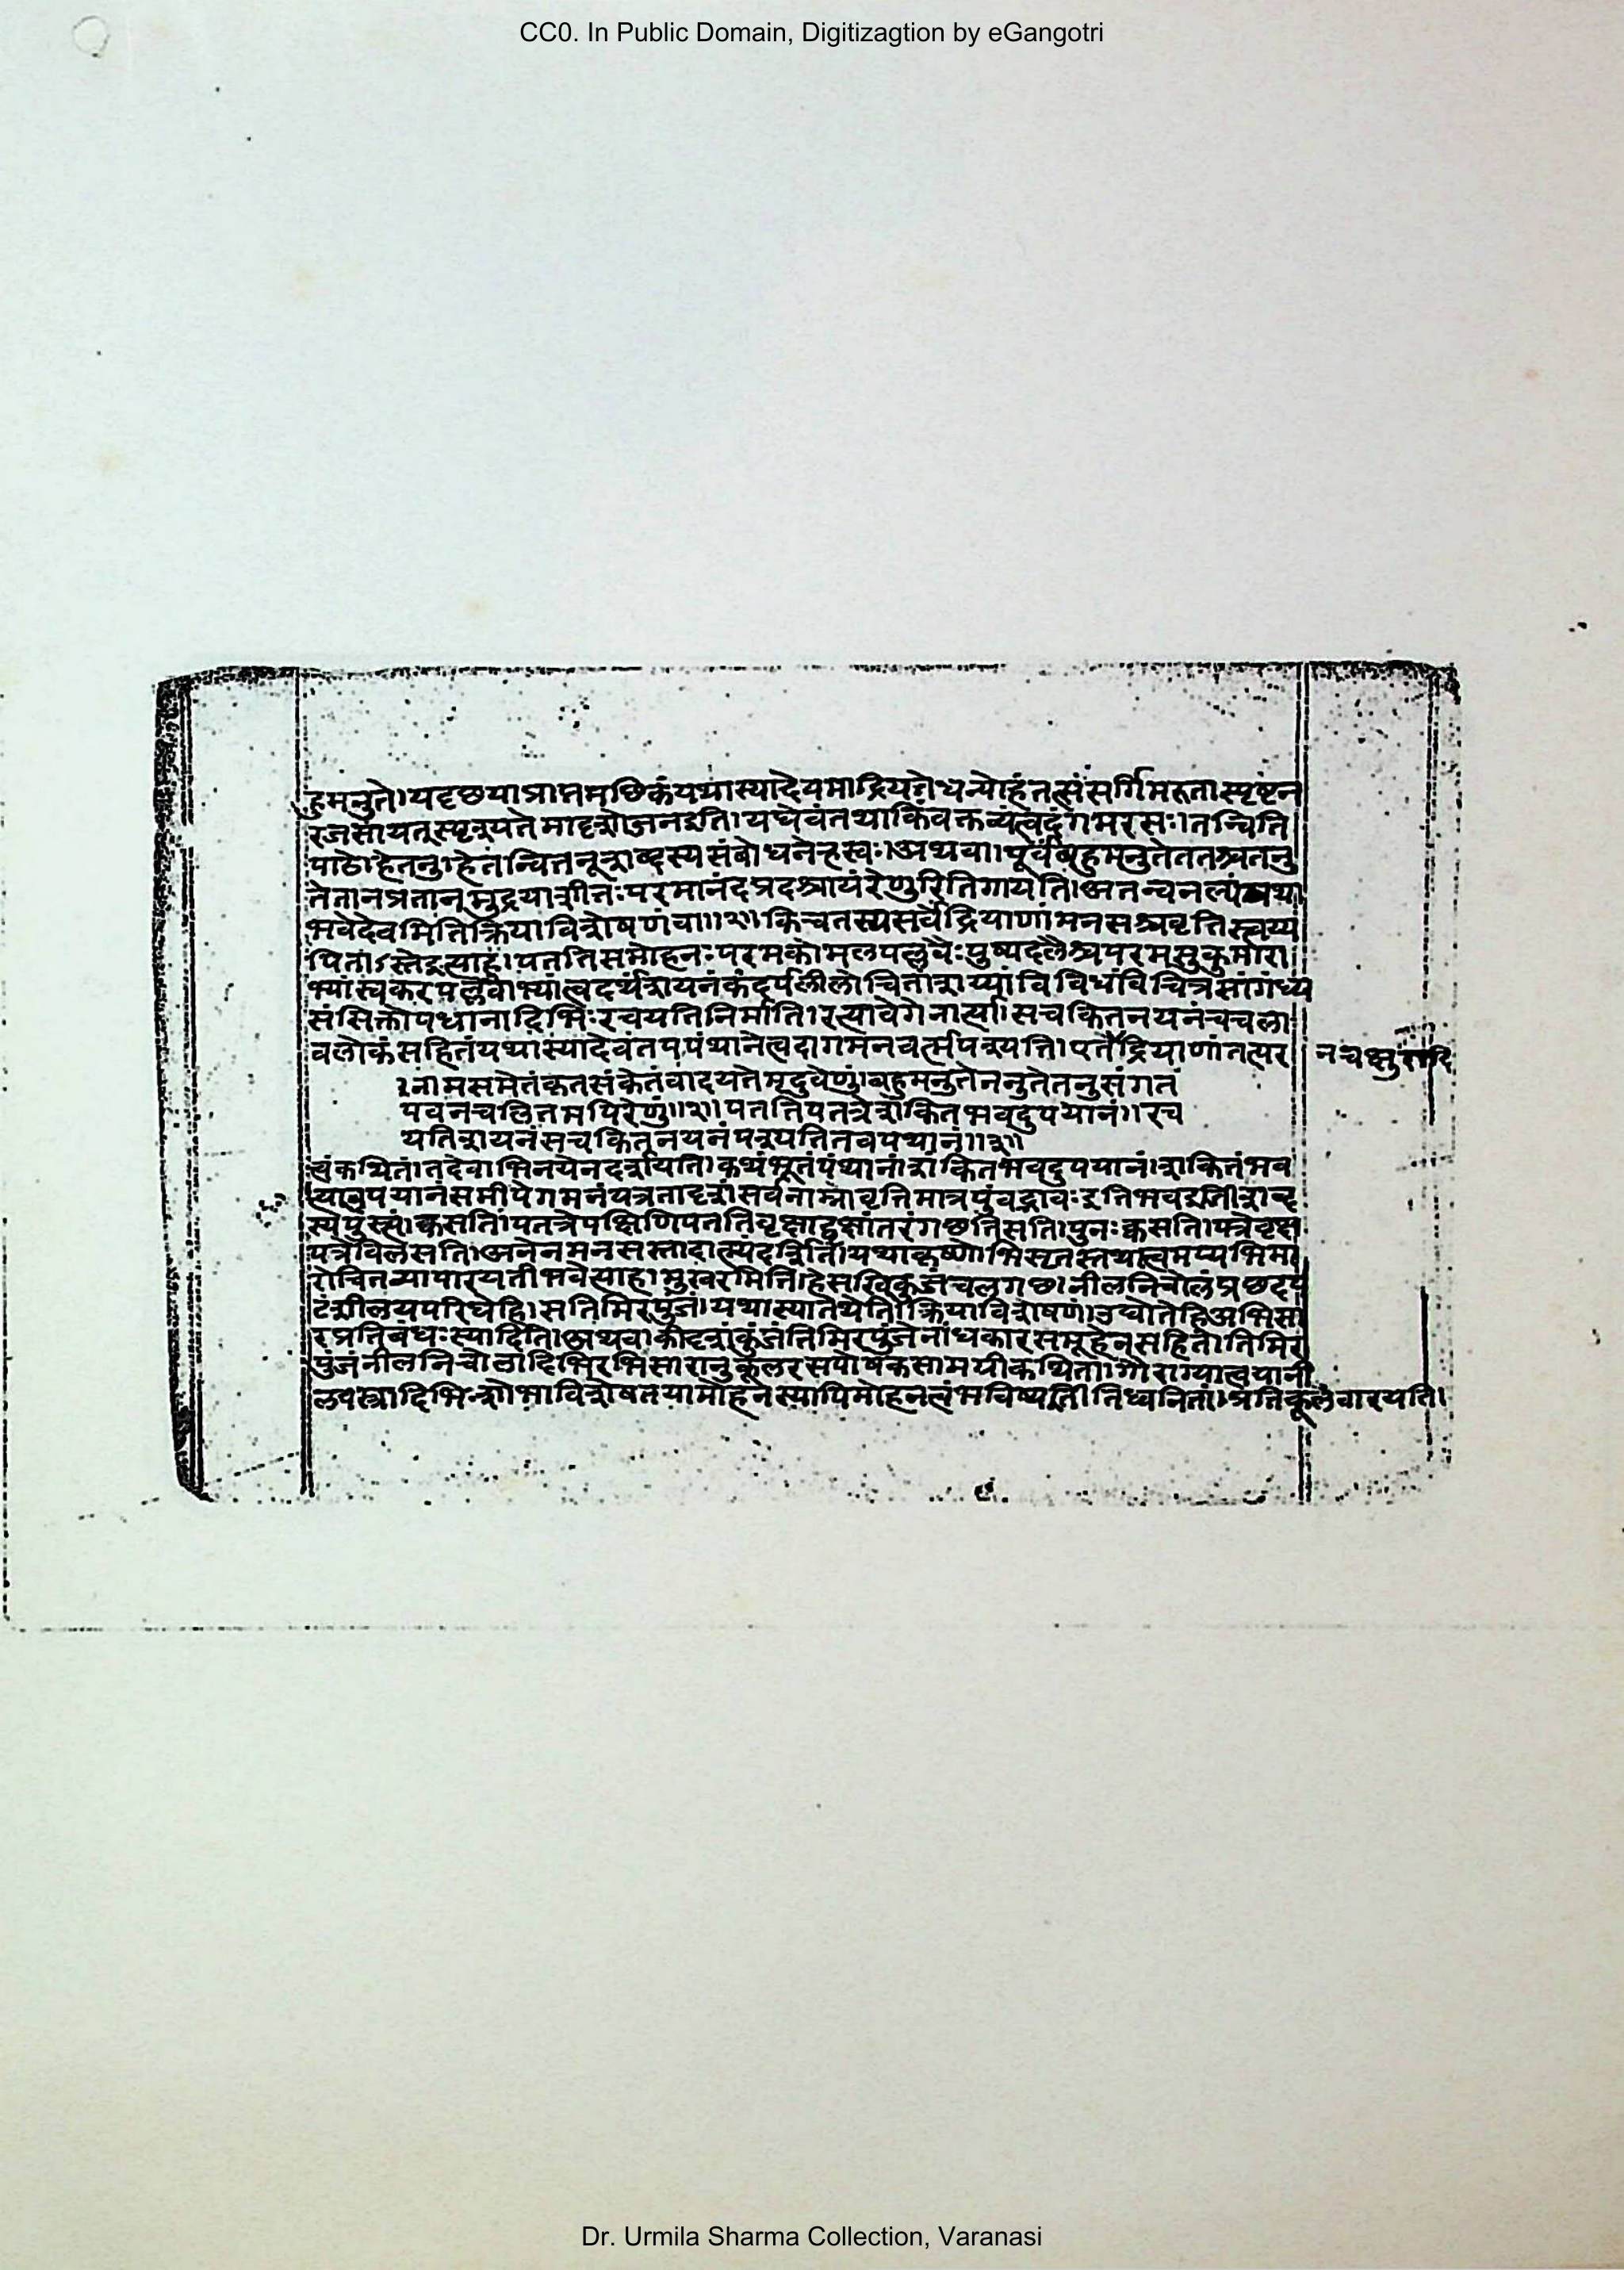 CC0. In Public Domain, Digitizagtion by eGangotri
हुमनुते।यदृछयाप्राप्तमधिकंयथास्यादेवमाद्रियतेधन्योहंतत्संसर्गिमरुतास्पृष्टेन
रजसायत्स्पृश्यतेमादृशोजनइति।यद्येवंतथाकिंवक्तव्यंत्वदंगमरसः।तन्विति
पाठेहेतनु।हेतन्वितनूशब्दस्यसंबोधनेह्रस्वः।अथवा।पूर्वंबहुमनुतेततश्चतनु
तेतानप्रतानमुद्रयाशीतःपरमानंदप्रदश्चायंरेणुरितिगायति।अतन्वनल्पंयथा
भवेदेवमितिक्रियाविशेषणंवा॥२॥किंचतस्यसर्वेंद्रियाणांमनसश्चवृत्तिस्त्वय्य
र्पिताऽस्तेइत्याह।पततिसमोहनःपरमकोमलपल्लवैःपुष्पदलैश्चपरमसुकुमारा
भ्यांस्वकरपल्लवाभ्यांत्वदर्थंशयनंकंदर्पलीलोचितांशय्यांविविधविचित्रसौगंध्य
संसिक्तोपधानादिभिःरचयतिनिर्माति।रत्यावेगेनार्त्त्या।सचकितनयनंचंचला
वलोकसहितंयथास्यादेवंतवपंथानंत्वदागमनवर्त्मपश्यति।एतेनेंद्रियाणांतत्पर
नचक्षुरादि
नामसमेतंकृतसंकेतंवादयतेमृदुवेणुं।बहुमनुतेननुतेतनुसंगत
पवनचलितमपिरेणुं॥२॥पततिपतत्रेशंकितभवदुपयानं॥रच
यतिशयनंसचकितनयनंपश्यतितवपंथानं॥३॥
त्वंकथितं।तदेवाभिनयेनदर्शयति।कथंभूतंपंथानंशंकितभवदुपयानं।शंकितंभव
त्याउपयानंसमीपेगमनंयत्रतादृशं।सर्वनाम्नोवृत्तिमात्रेपुंवद्भावःइतिभवइतिशब्द
स्यपुंस्त्वं।कस्मिन्सतिपतत्रेपक्षिणिपततिवृक्षाद्वृक्षांतरंगछतिसति।पुनःक्वसति।पत्रेवृक्ष
पत्रेविलसति।अनेनमनसस्तादात्म्यंदर्शितं।यथाकृष्णोभिसृतस्तथात्वमप्यभिसा
रोचितव्यापारयतीभवेत्याह।मुखरमिति।हेसखिकुंजंचलगछ।नीलनिचोलंप्रछदप
टंशीलयपरिधेहि।सतिमिरपुंजं।यथास्यात्तथेतिक्रियाविशेषणं।उद्योतेहिअभिसा
रप्रतिबंधःस्यादिति।अथवाकीदृशंकुंजंतिमिरपुंजेनांधकारसमूहेनसहितं।तिमिर
पुंजंनीलनिचोलादिभिरभिसारानुकूलरसपोषकसामग्रीकथिता।गौरांग्यास्त्वयानी
लवस्त्रादिभिःशोभाविशेषतयामोहनस्यापिमोहनत्वंभविष्यतीतिध्वनितं।प्रतिकूलंवारयति।
Dr. Urmila Sharma Collection, Varanasi